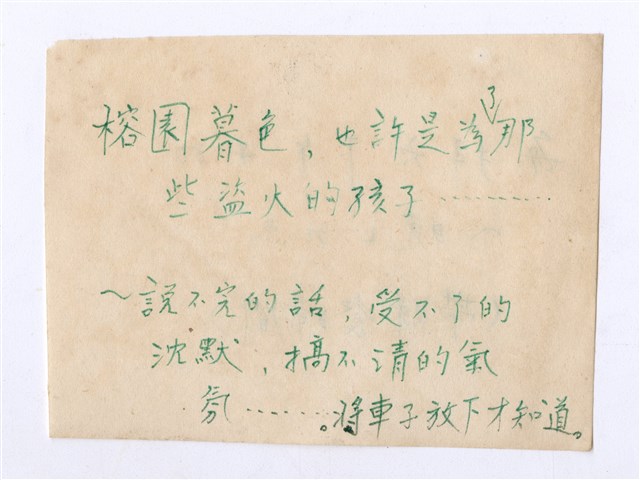 榕園暮色，也許是為了那
些盜火的孩子………
～說不完的話，受不了的
沈默，搞不清的氣
氛………。將車子放下才知道。